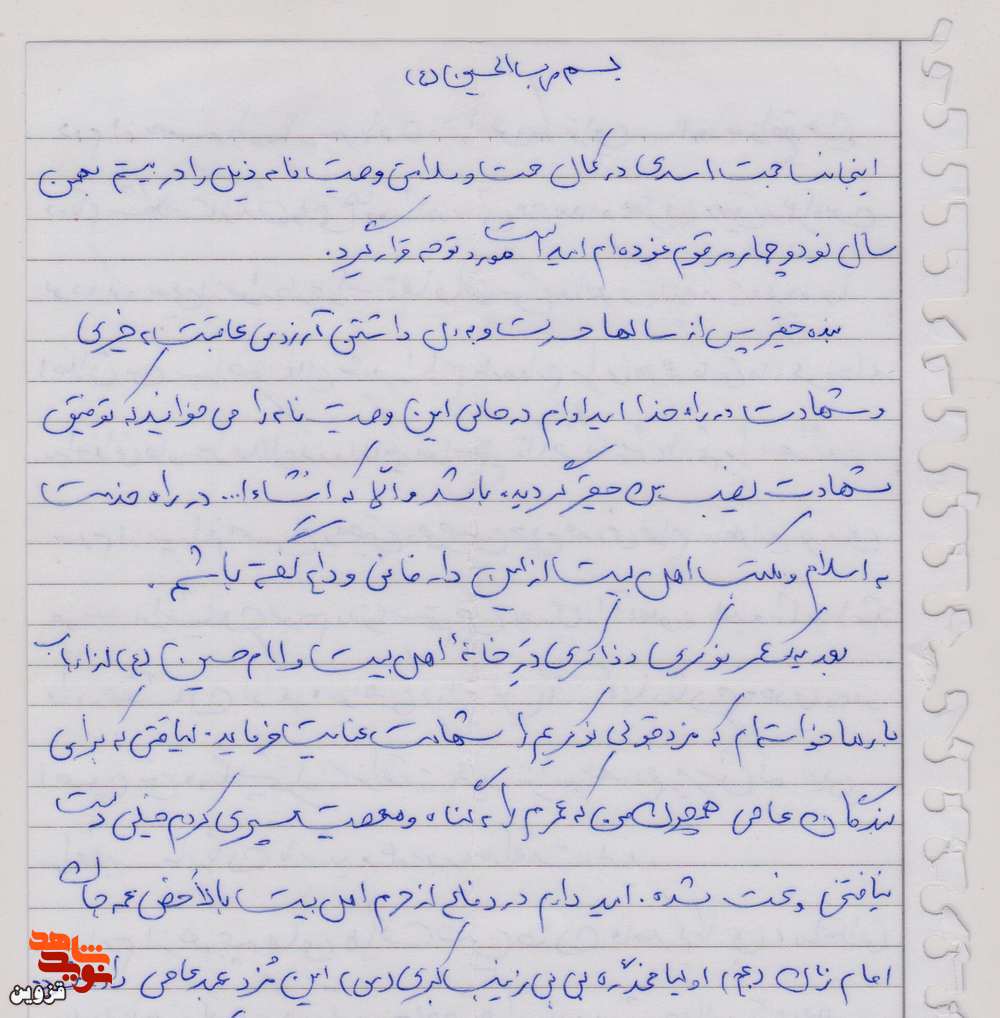 بسم رب الحسین (ع)
اینجانب حجت اسدی در کمال صحت و سلامتی وصیت نامه ذیل را در بیستم بهمن
سال نود و چهار مرقوم نموده ام امید است مورد توجه قرار گیرد.
بنده حقیر پس از سالها حسرت و به دل داشتن آرزوی عاقبت به خیری
و شهادت در راه خدا امیدوارم در حالی این وصیت نامه را می خوانید که توفیق
شهادت نصیب من حقیر گردیده باشد و الا که انشاءا... در راه خدمت
به اسلام و مکتب اهل بیت از این دار فانی وداع گفته باشم.
بعد یک عمر نوکری و ذاکری در خانهٔ اهل بیت و امام حسین (ع) از ارباب
بارها خواسته ام که مزد نوکریم را شهادت عنایت فرماید. لیاقتی که برای
بندگان عاصی همچون من که عمرم را به گناه و معصیت سپری کردم خیلی دست
نیافتنی و سخت شده. امید دارم در دفاع از حرم اهل بیت بالأخص عمه جان
امام زمان (عج) اولیا مخدّره بی بی زینب کبری (س) این مُزد عبد عاصی
شاهد
نوید
قزوین